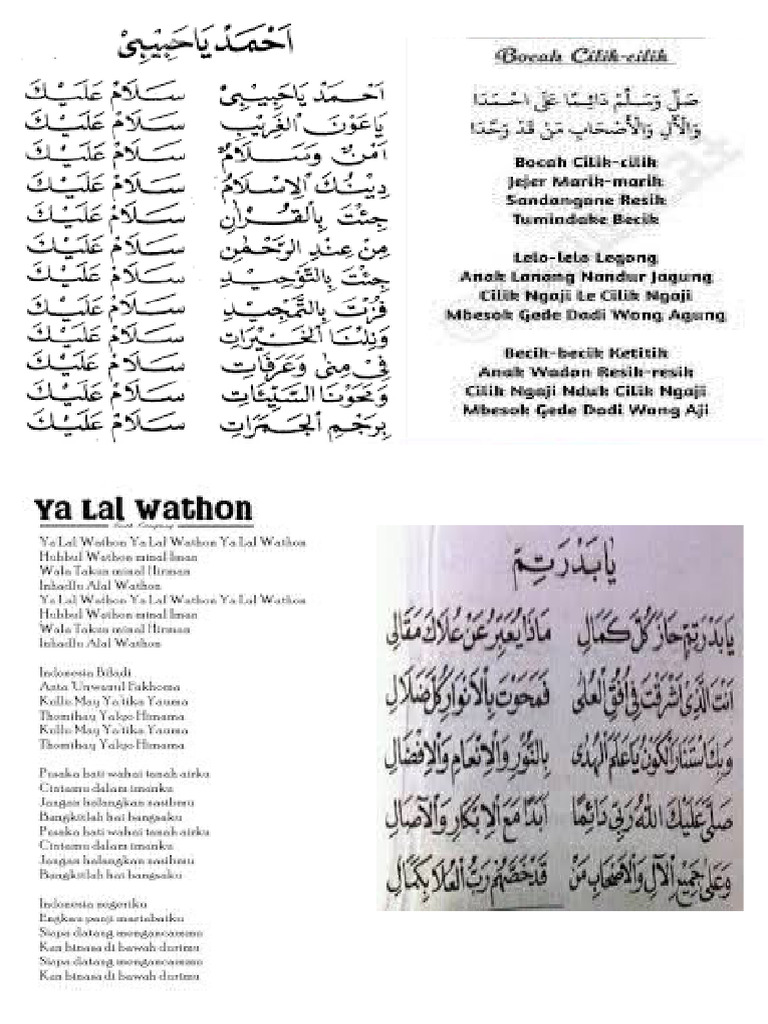 اَحْمَدْ يَاحَبِيْبِيْ
اَحْمَدْ يَاحَبِيْبِيْ سَلَامْ عَلَيْكَ
يَاعَوْنَ الْغَرِيْبِ سَلَامْ عَلَيْكَ
اَمْنٌ وَسَلَامٌ سَلَامْ عَلَيْكَ
دِيْنُكَ الْاِسْلَامُ سَلَامْ عَلَيْكَ
جِئْتَ بِالْقُرْاٰنِ سَلَامْ عَلَيْكَ
مِنْ عِنْدِ الرَّحْمٰنِ سَلَامْ عَلَيْكَ
جِئْتَ بِالتَّوْحِيْدِ سَلَامْ عَلَيْكَ
فُزْتَ بِالتَّمْجِيْدِ سَلَامْ عَلَيْكَ
وَنِلْنَا الْخَيْرَاتِ سَلَامْ عَلَيْكَ
فِيْ مِنٰى وَعَرَفَاتِ سَلَامْ عَلَيْكَ
وَمَحَوْنَا السَّيِّئَاتِ سَلَامْ عَلَيْكَ
بِرَجْمِ الْجَمَرَاتِ سَلَامْ عَلَيْكَ
Bocah Cilik-cilik
صَلِّ وَسَلِّمْ دَائِمًا عَلَى احْمَدَا
وَالْآلِ وَالْأَصْحَابِ مَنْ قَدْ وَحَّدَا
Bocah Cilik-cilik
Jejer Marik-marik
Sandangane Resik
Tumindake Becik
Lelo-lelo Legong
Anak Lanang Nandur Jagung
Cilik Ngaji Le Cilik Ngaji
Mbesok Gede Dadi Wong Agung
Becik-becik Ketitik
Anak Wadon Resik-resik
Cilik Ngaji Nduk Cilik Ngaji
Mbesok Gede Dadi Wong Aji
Ya Lal Wathon
Ya Lal Wathon Ya Lal Wathon Ya Lal Wathon
Hubbul Wathon minal Iman
Wala Takun minal Hirman
Inhadlu Alal Wathon
Ya Lal Wathon Ya Lal Wathon Ya Lal Wathon
Hubbul Wathon minal Iman
Wala Takun minal Hirman
Inhadlu Alal Wathon
Indonesia Biladi
Anta 'Unwanul Fakhoma
Kullu May Ya'tika Yauma
Thomihay Yalqo Himama
Kullu May Ya'tika Yauma
Thomihay Yalqo Himama
Pusaka hati wahai tanah airku
Cintamu dalam imanku
Jangan halangkan nasibmu
Bangkitlah hai bangsaku
Pusaka hati wahai tanah airku
Cintamu dalam imanku
Jangan halangkan nasibmu
Bangkitlah hai bangsaku
Indonesia negeriku
Engkau panji martabatku
Siapa datang mengancammu
Kan binasa di bawah durimu
Siapa datang mengancammu
Kan binasa di bawah durimu
يَابَدْرَتِمّ
يَابَدْرَتِمٍّ حَازَ كُلَّ كَمَالِ مَاذَا يُعَبِّرُ عَنْ عُلَاكَ مَقَالِي
اَنْتَ الَّذِيْ اَشْرَقْتَ فِي اُفُقِ الْعُلٰى فَمَحَوْتَ بِالْاَنْوَارِ كُلَّ ضَلَالِ
وَبِكَ اسْتَنَارَ الْكَوْنُ يَاعَلَمَ الْهُدٰى بِالنُّوْرِ وَالْاِنْعَامِ وَالْاِفْضَالِ
صَلّٰى عَلَيْكَ اللهُ رَبِّيْ دَائِمًا اَبَدًا مَعَ الْاِبْكَارِ وَالْاٰصَالِ
وَعَلٰى جَمِيْعِ الْاٰلِ وَالْاَصْحَابِ مَنْ قَدْ خَصَّهُمْ رَبُّ الْعُلَا بِكَمَالِ